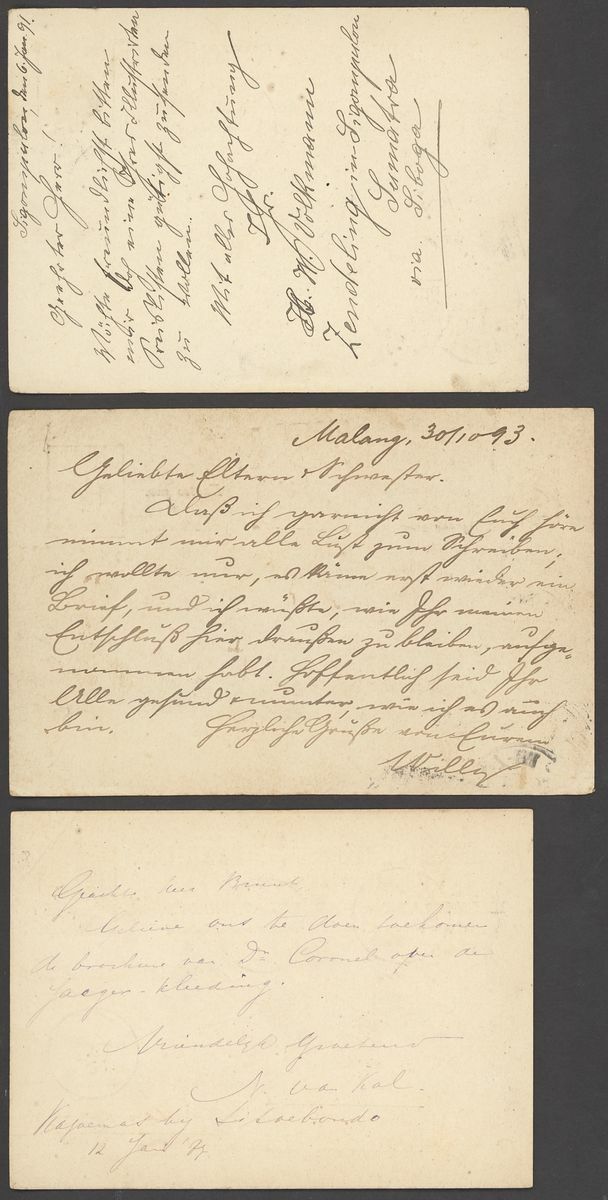 Sigompulon, den 6. Jan 91.
Geehrter Herr!
Möchte freundlichst bitten
mir doch eine Ihrer Illustrirten
Preislisten gütigst zusenden
zu wollen.
Mit aller Hochachtung
Ihr.
H. W. Volkmann
Zendeling in Sigompulon
Sumatra
via Siboga
Malang, 30/10 93.
Geliebte Eltern & Schwester.
Daß ich garnicht von Euch höre
nimmt mir alle Lust zum Schreiben;
ich wollte nur, es käme erst wieder ein
Brief, und ich wüßte, wie Ihr meinen
Entschluß hier draußen zu bleiben, aufge-
nommen habt. Hoffentlich seid Ihr
Alle gesund & munter, wie ich es auch
bin. Herzliche Grüße von Eurem
Willy
Geachte heer
Gelieve ons te doen toekomen
de brochure van Dr. Coronel over de
Jaeger-kleeding.
Vriendelijk Groetend
N. van Kol.
Kajoemas by Sitoebondo
12 Jan